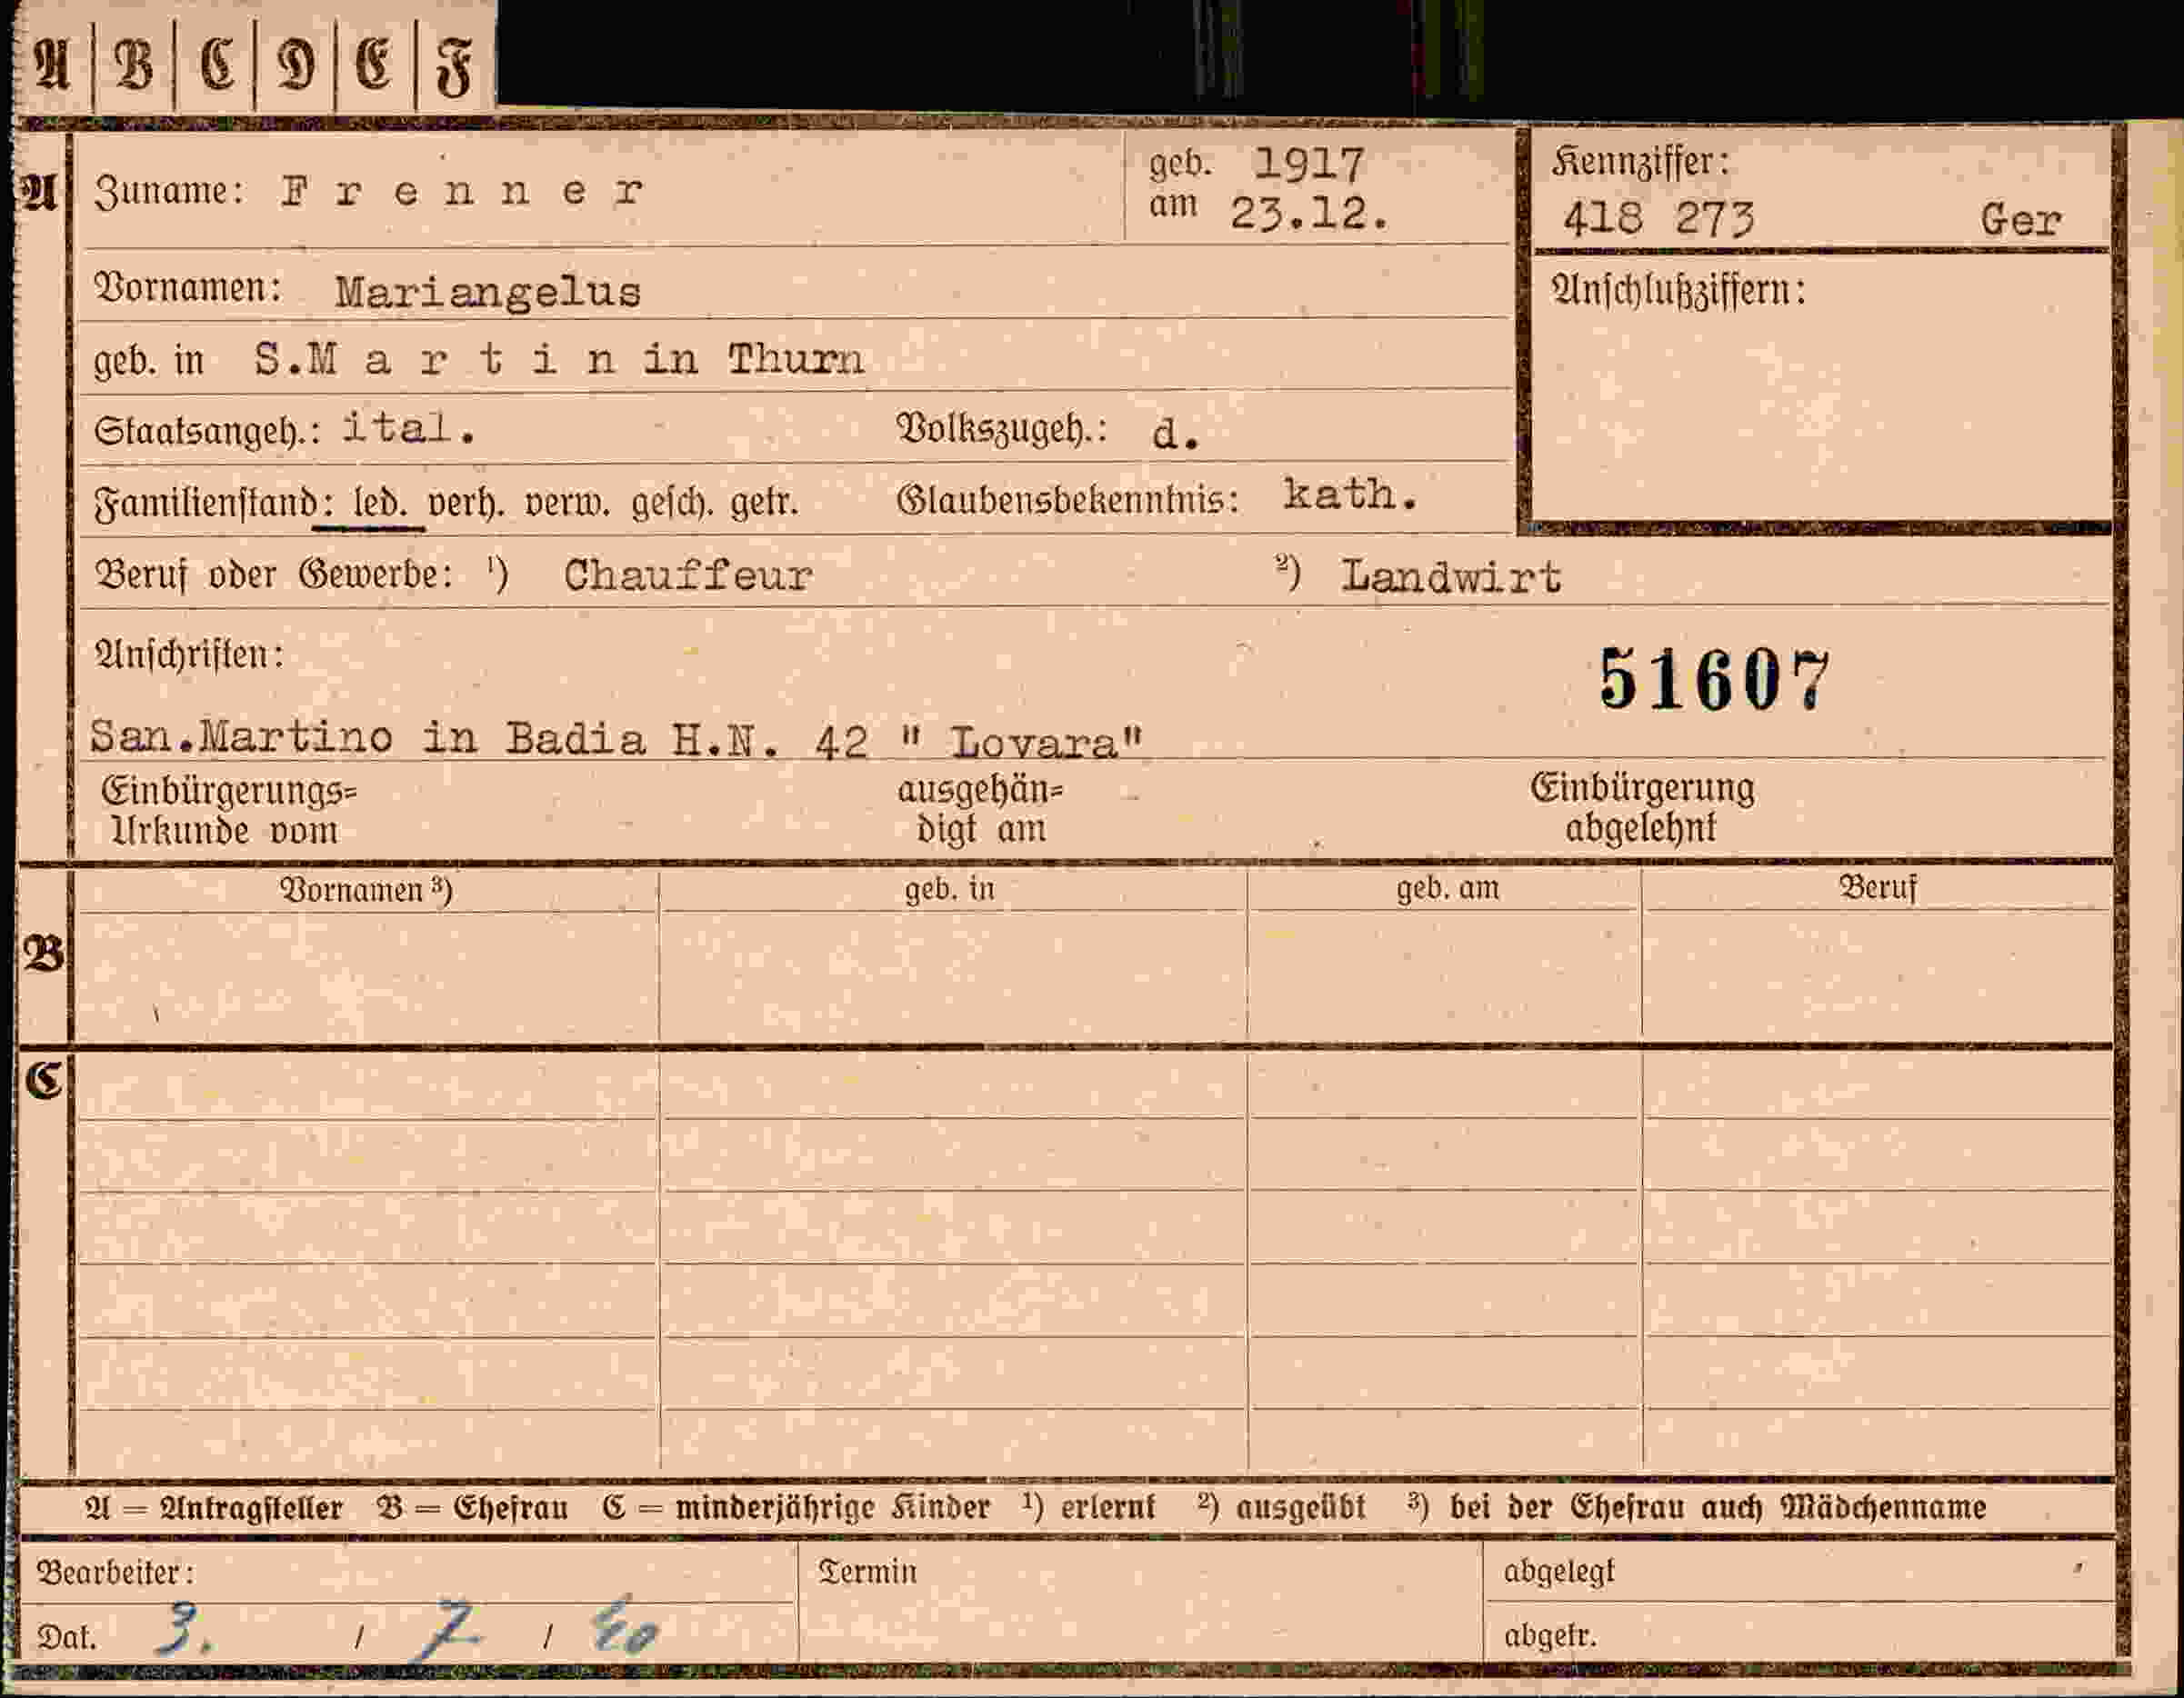 A | B | C | D | E | F
A
Zuname: F r e n n e r
geb. 1917
am 23.12.
Kennziffer:
418 273 Ger
Vornamen: Mariangelus
Anschlußziffern:
geb. in S.M a r t i n in Thurn
Staatsangeh.: ital. Volkszugeh.: d.
Familienstand: led. verh. verw. gesch. getr. Glaubensbekenntnis: kath.
Beruf oder Gewerbe: ¹) Chauffeur ²) Landwirt
Anschriften:
51607
San.Martino in Badia H.N. 42 " Lovara"
Einbürgerungs= ausgehän= Einbürgerung
Urkunde vom digt am abgelehnt
Vornamen ³) geb. in geb. am Beruf
B
C
A = Antragsteller B = Ehefrau C = minderjährige Kinder ¹) erlernt ²) ausgeübt ³) bei der Ehefrau auch Mädchenname
Bearbeiter: Termin abgelegt
Dat. 3. / 7 / 40 abgetr.